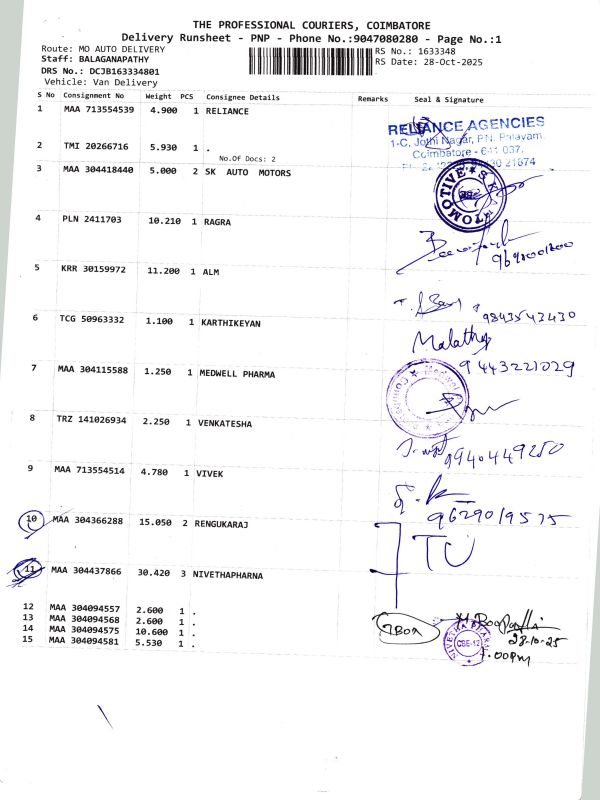 THE PROFESSIONAL COURIERS, COIMBATORE
Delivery Runsheet - PNP - Phone No.:9047080280 - Page No.:1
Route: MO AUTO DELIVERY RS No.: 1633348
Staff: BALAGANAPATHY RS Date: 28-Oct-2025
DRS No.: DCJB163334801
Vehicle: Van Delivery
S No Consignment No Weight PCS Consignee Details Remarks Seal & Signature
1 MAA 713554539 4.900 1 RELIANCE
RELIANCE AGENCIES
1-C, Jothi Nagar, P.N. Palayam,
Coimbatore - 641 037.
2 TMI 20266716 5.930 1 .
No.Of Docs: 2
3 MAA 304418440 5.000 2 SK AUTO MOTORS
4 PLN 2411703 10.210 1 RAGRA
5 KRR 30159972 11.200 1 ALM
9843543430
6 TCG 50963332 1.100 1 KARTHIKEYAN
Malathy
9443221029
7 MAA 304115588 1.250 1 MEDWELL PHARMA
8 TRZ 141026934 2.250 1 VENKATESHA
9940449250
9 MAA 713554514 4.780 1 VIVEK
9629019575
10 MAA 304366288 15.050 2 RENGUKARAJ
TU
11 MAA 304437866 30.420 3 NIVETHAPHARNA
12 MAA 304094557 2.600 1 .
13 MAA 304094568 2.600 1 .
14 MAA 304094575 10.600 1 .
15 MAA 304094581 5.530 1 .
28-10-25
CBE-12
7.00pm